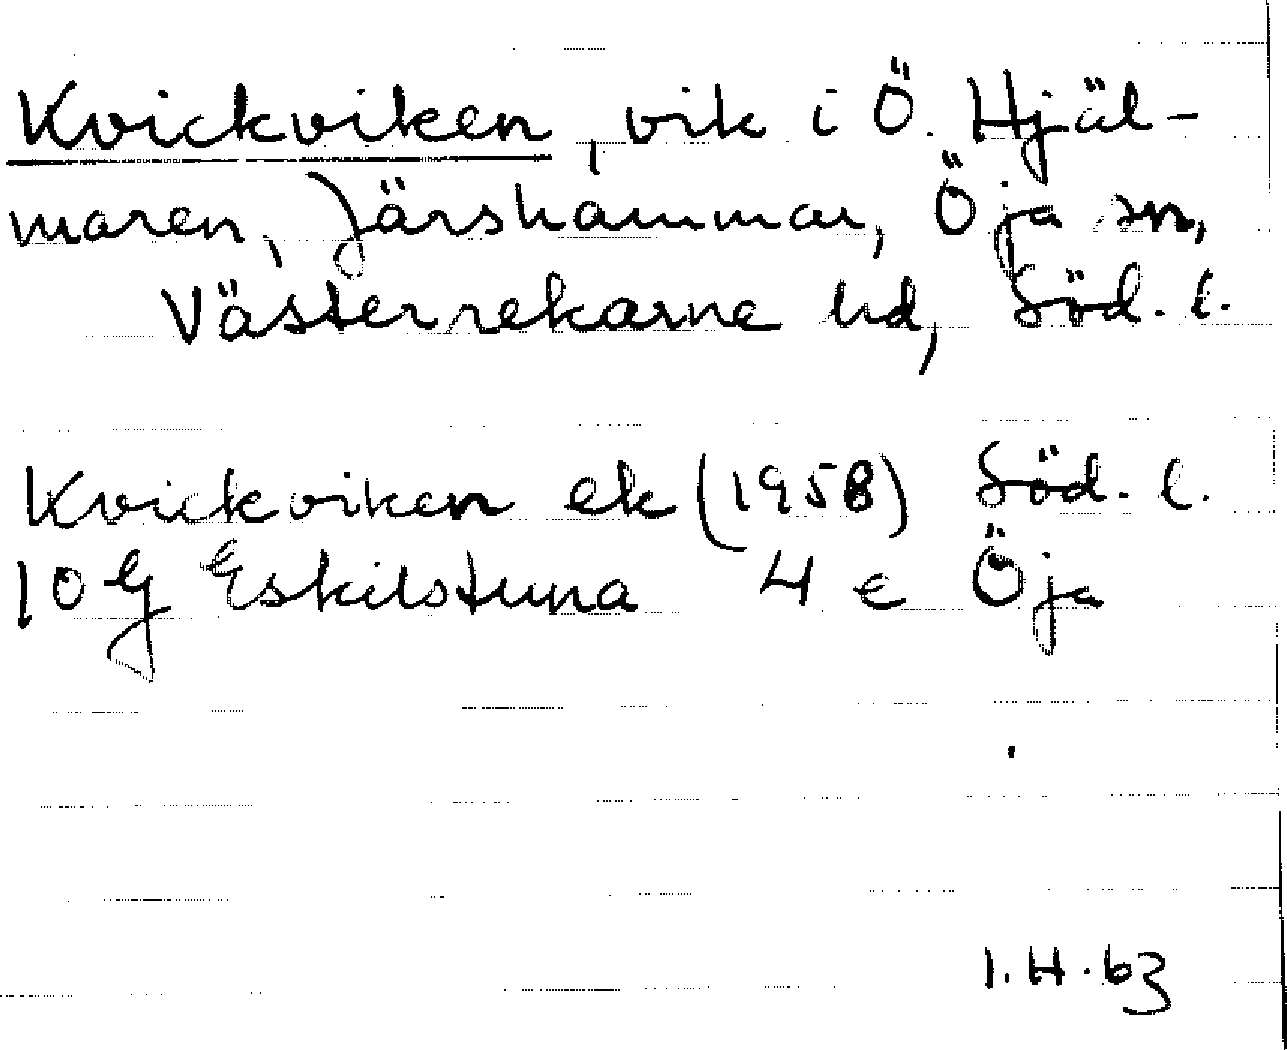 Kvickviken, vik i Ö. Hjäl-
maren, Järshammar, Öja sn,
Västerrekarne hd, Söd. l.
Kvickviken ek (1958) Söd. l.
10 G Eskilstuna 4 e Öja
I.H.63